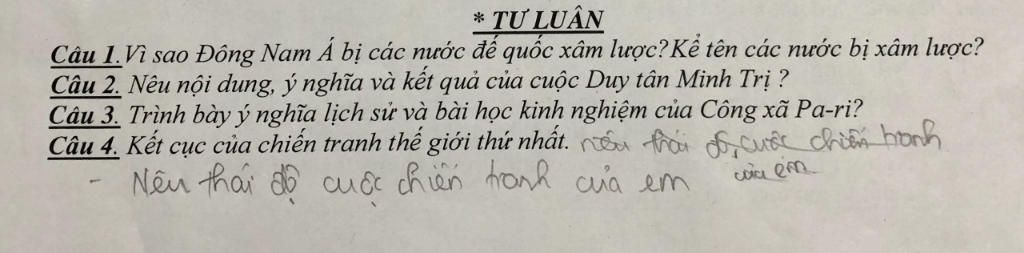 * TỰ LUÂN
Câu 1. Vì sao Đông Nam Á bị các nước đế quốc xâm lược? Kể tên các nước bị xâm lược?
Câu 2. Nêu nội dung, ý nghĩa và kết quả của cuộc Duy tân Minh Trị ?
Câu 3. Trình bày ý nghĩa lịch sử và bài học kinh nghiệm của Công xã Pa-ri?
Câu 4. Kết cục của chiến tranh thế giới thứ nhất. nêu thái độ cuộc chiến tranh
của em
- Nêu thái độ cuộc chiến tranh của em